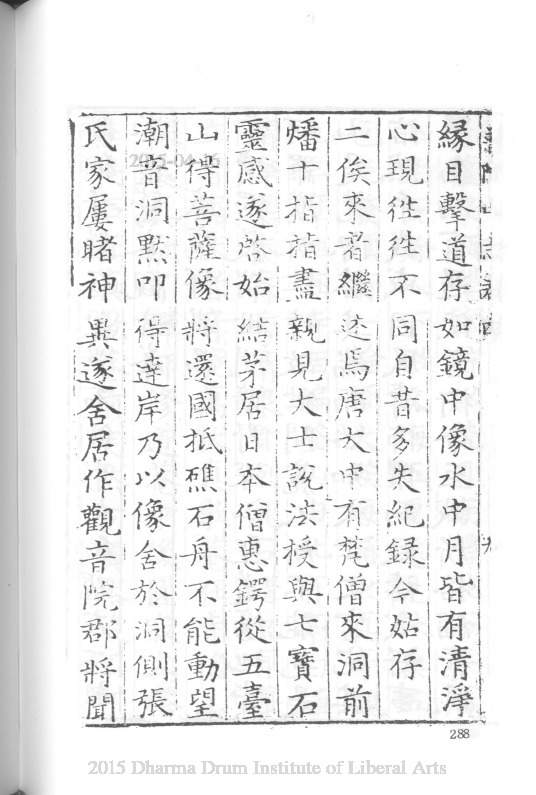 緣目擊道存如鏡中像水中月皆有清淨
心現徃徃不同自昔多失紀録今姑存
二俟來者繼述焉唐大中有梵僧來洞前
燔十指指盡親見大士說法授與七寶石
靈感遂啓始結茅居日本僧惠鍔從五臺
山得菩薩像將還國抵礁石舟不能動望
潮音洞默叩得達岸乃以像舍於洞側張
氏家屢睹神異遂舍居作觀音院郡將聞
288
2015 Dharma Drum Institute of Liberal Arts